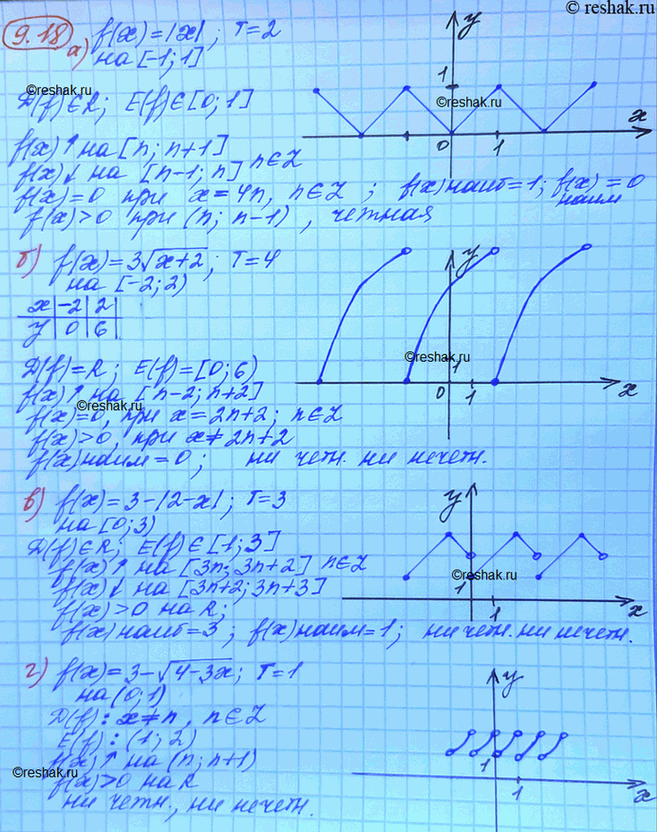 © reshak.ru
9.18 а) f(x)=|x|; T=2
на [-1;1]
©reshak.ru
D(f)∈R; E(f)∈[0;1]
f(x)↑ на [n; n+1]
f(x)↓ на [n-1; n] n∈Z
f(x)=0 при x=4n, n∈Z; f(x)наиб=1; f(x)наим=0
f(x)>0 при (n; n-1), чётная
y
1
©reshak.ru
x
0 1
б) f(x)=3√(x+2); T=4
на [-2;2)
x | -2 | 2
y | 0 | 6
D(f)=R; E(f)=[0;6)
f(x)↑ на [n-2; n+2]
©reshak.ru
f(x)=0, при x=2n+2; n∈Z
f(x)>0, при x≠2n+2
f(x)наим=0; ни четн. ни нечетн.
y
©reshak.ru
1
0 1 x
в) f(x)=3-|2-x|; T=3
на [0;3)
D(f)∈R; E(f)∈[1;3]
f(x)↑ на [3n; 3n+2] n∈Z
f(x)↓ на [3n+2; 3n+3]
f(x)>0 на R;
f(x)наиб=3; f(x)наим=1; ни четн. ни нечетн.
y
©reshak.ru
1
1 x
г) f(x)=3-√(4-3x); T=1
на (0;1)
D(f): x≠n, n∈Z
E(f): (1;2)
f(x)↑ на (n; n+1)
©reshak.ru
f(x)>0 на R
ни четн., ни нечетн.
y
1
1 x